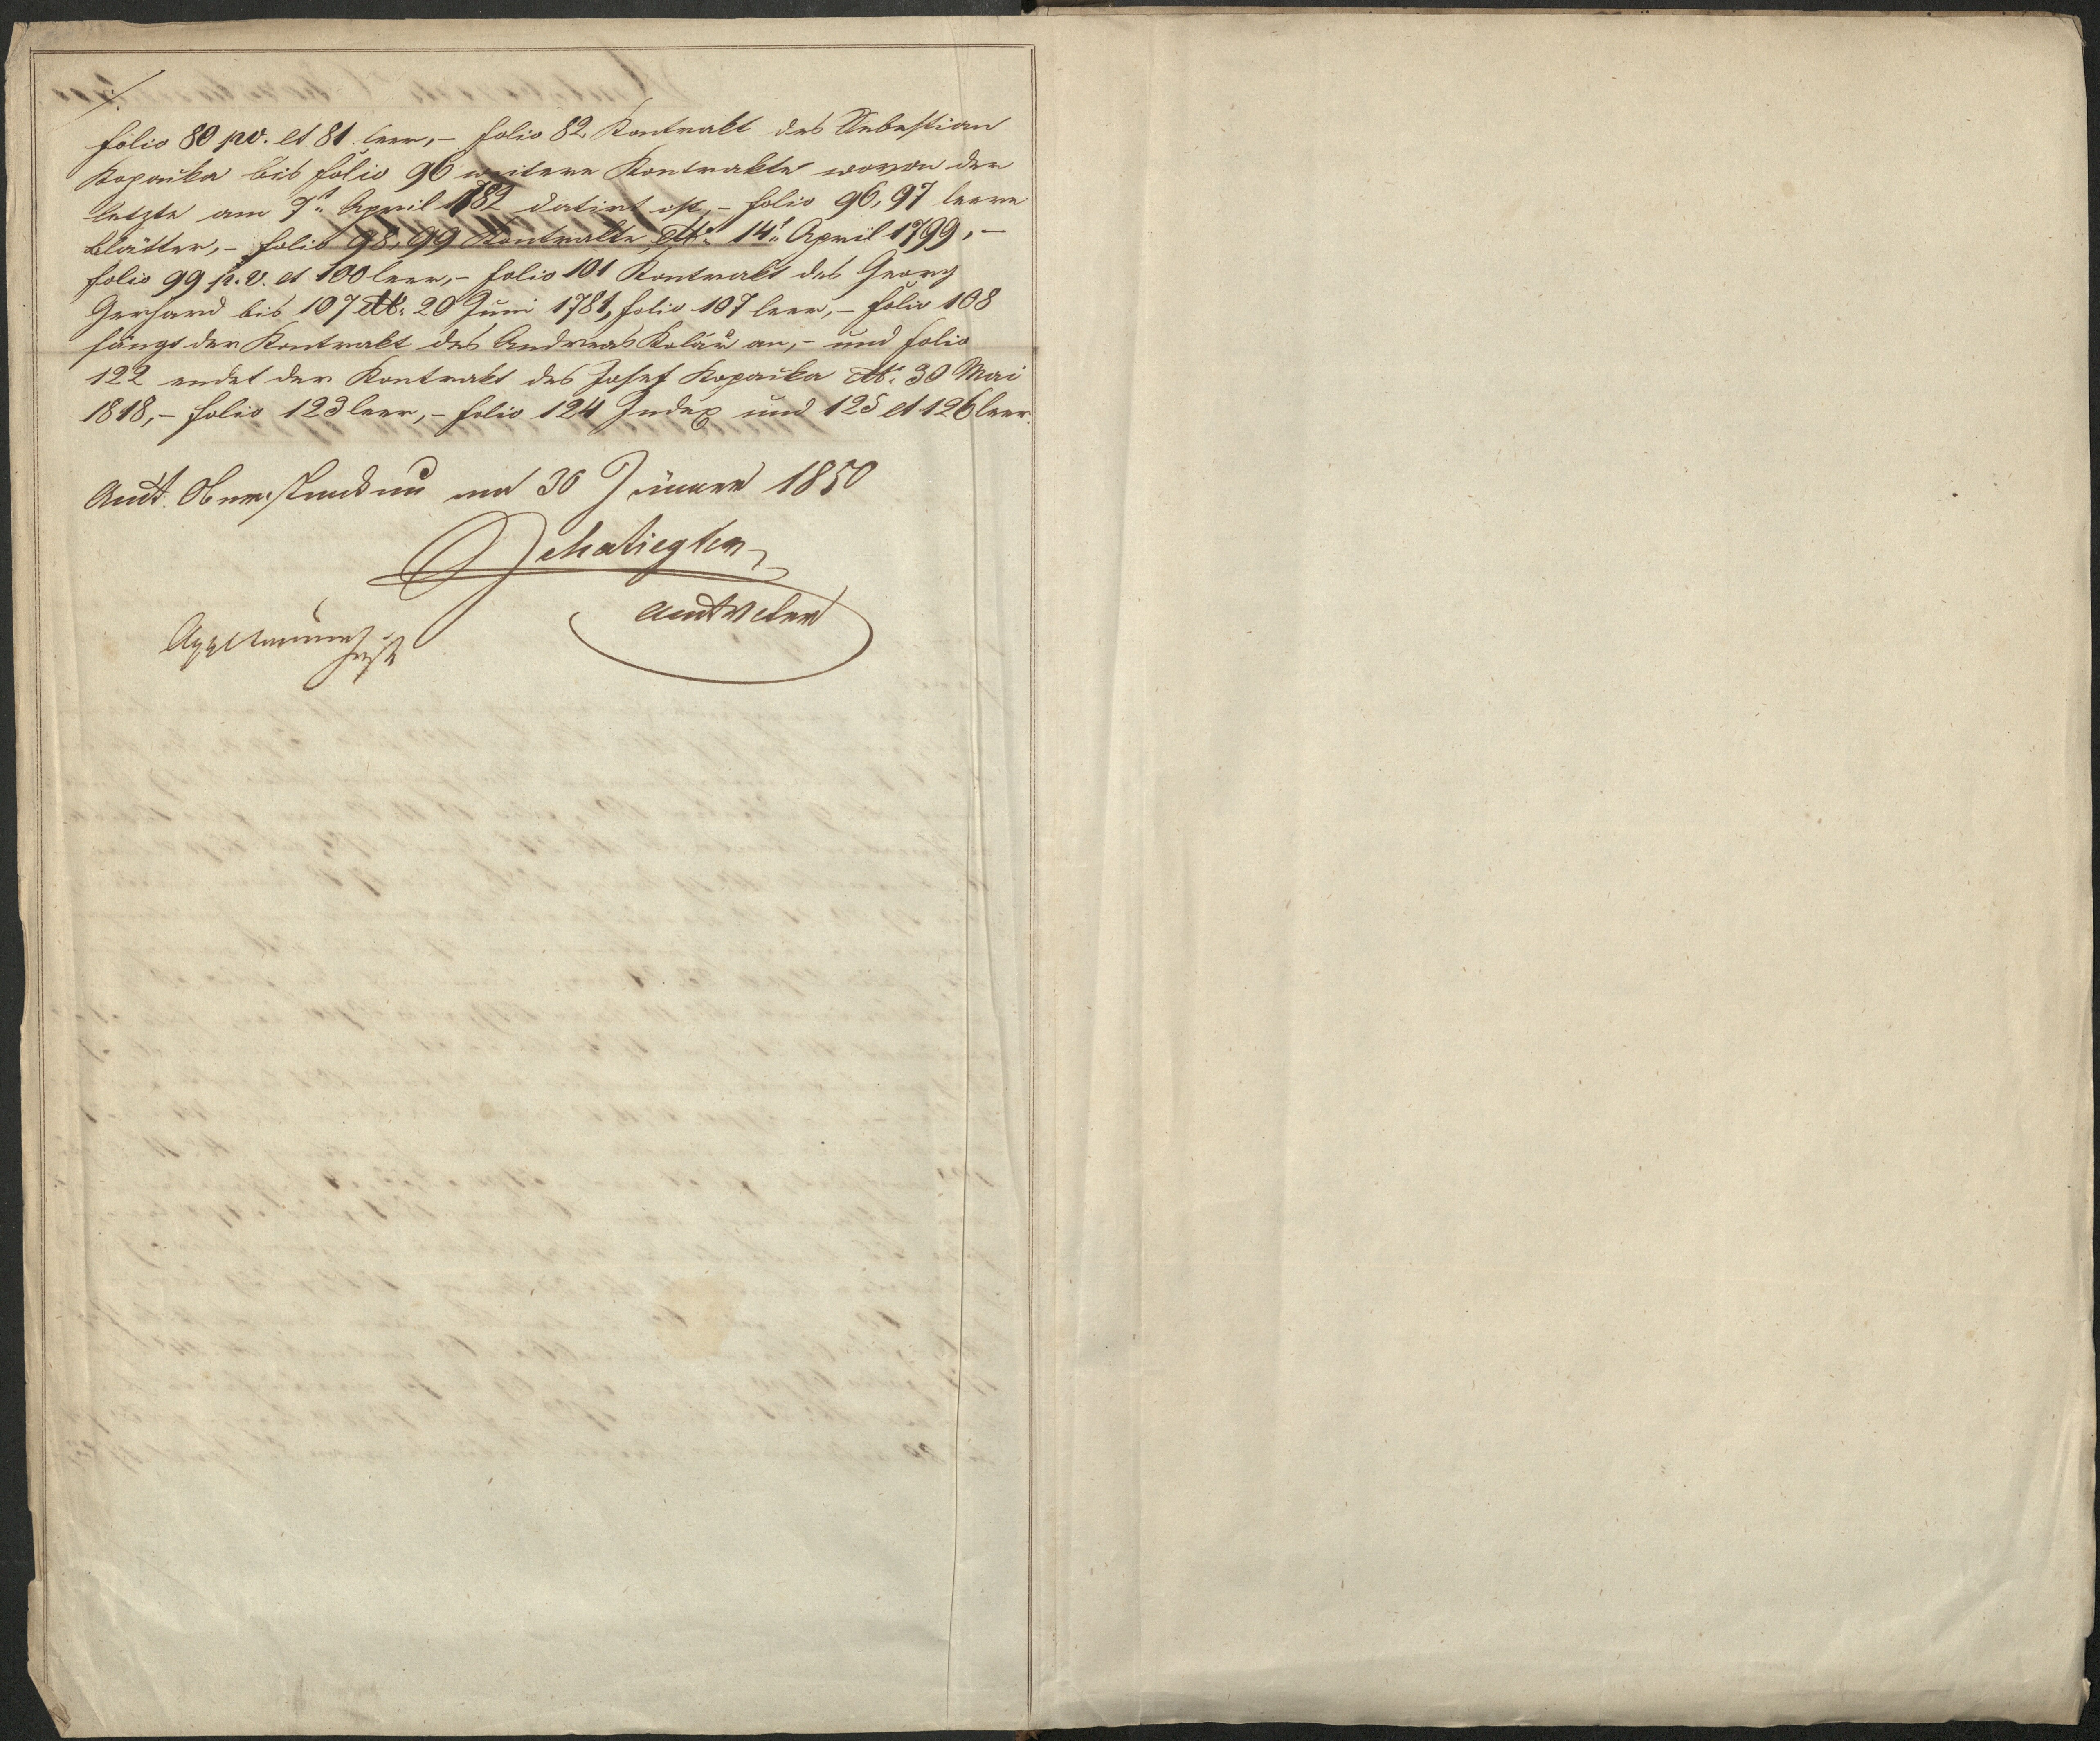 ./.
folio 80 pv. et 81 leer, – folio 82 Kontrakt des Sebastian
Kopaika bis folio 96 weitere Kontrakte wovon der
letzte am 7t. April 1782 datirt ist, – folio 96, 97 leere
Blätter, – folio 98, 99 Kontrakte dto. 14t. April 1799, –
folio 99 p. v. et 100 leer, – folio 101 Kontrakt des Georg
Gerhard bis 107 dto. 20 Juni 1781, folio 107 leer, – folio 108
fängt der Kontrakt des Andreas Kolář an, – und folio
122 endet der Kontrakt des Josef Kopaika dto. 30 Mai
1818, – folio 123 leer, – folio 124 Index und 125 et 126 leer.
Amt am 30 Jänner 1850